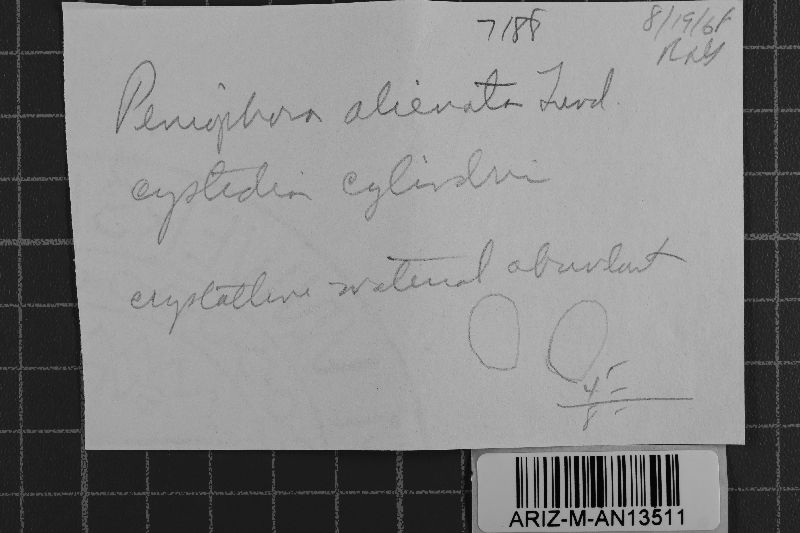 7188
8/19/68
RLG
Peniophora alienata Lund.
cystidia cylindri
crystalline material abundant
4
8
ARIZ-M-AN13511